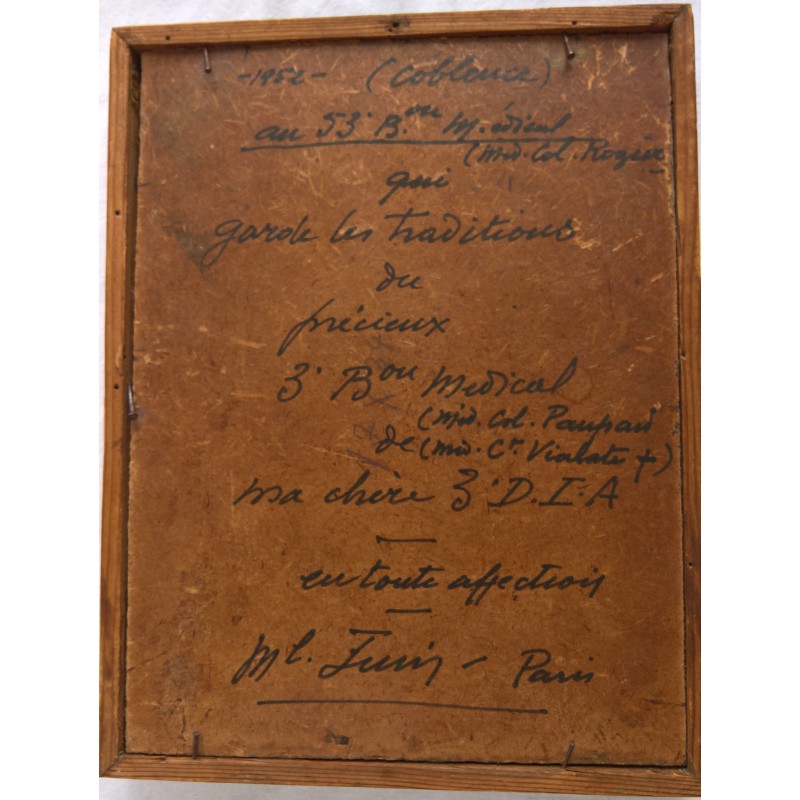 -1952- (Coblence)
au 53e Bon Médical
(Méd. Col. Rozier
qui
garde les traditions
du
précieux
3e Bon Médical
(Méd. Col. Paupard
de (Méd. Ct. Vialate +)
ma chère 3e D.I.A
en toute affection
Ml. Juin - Paris